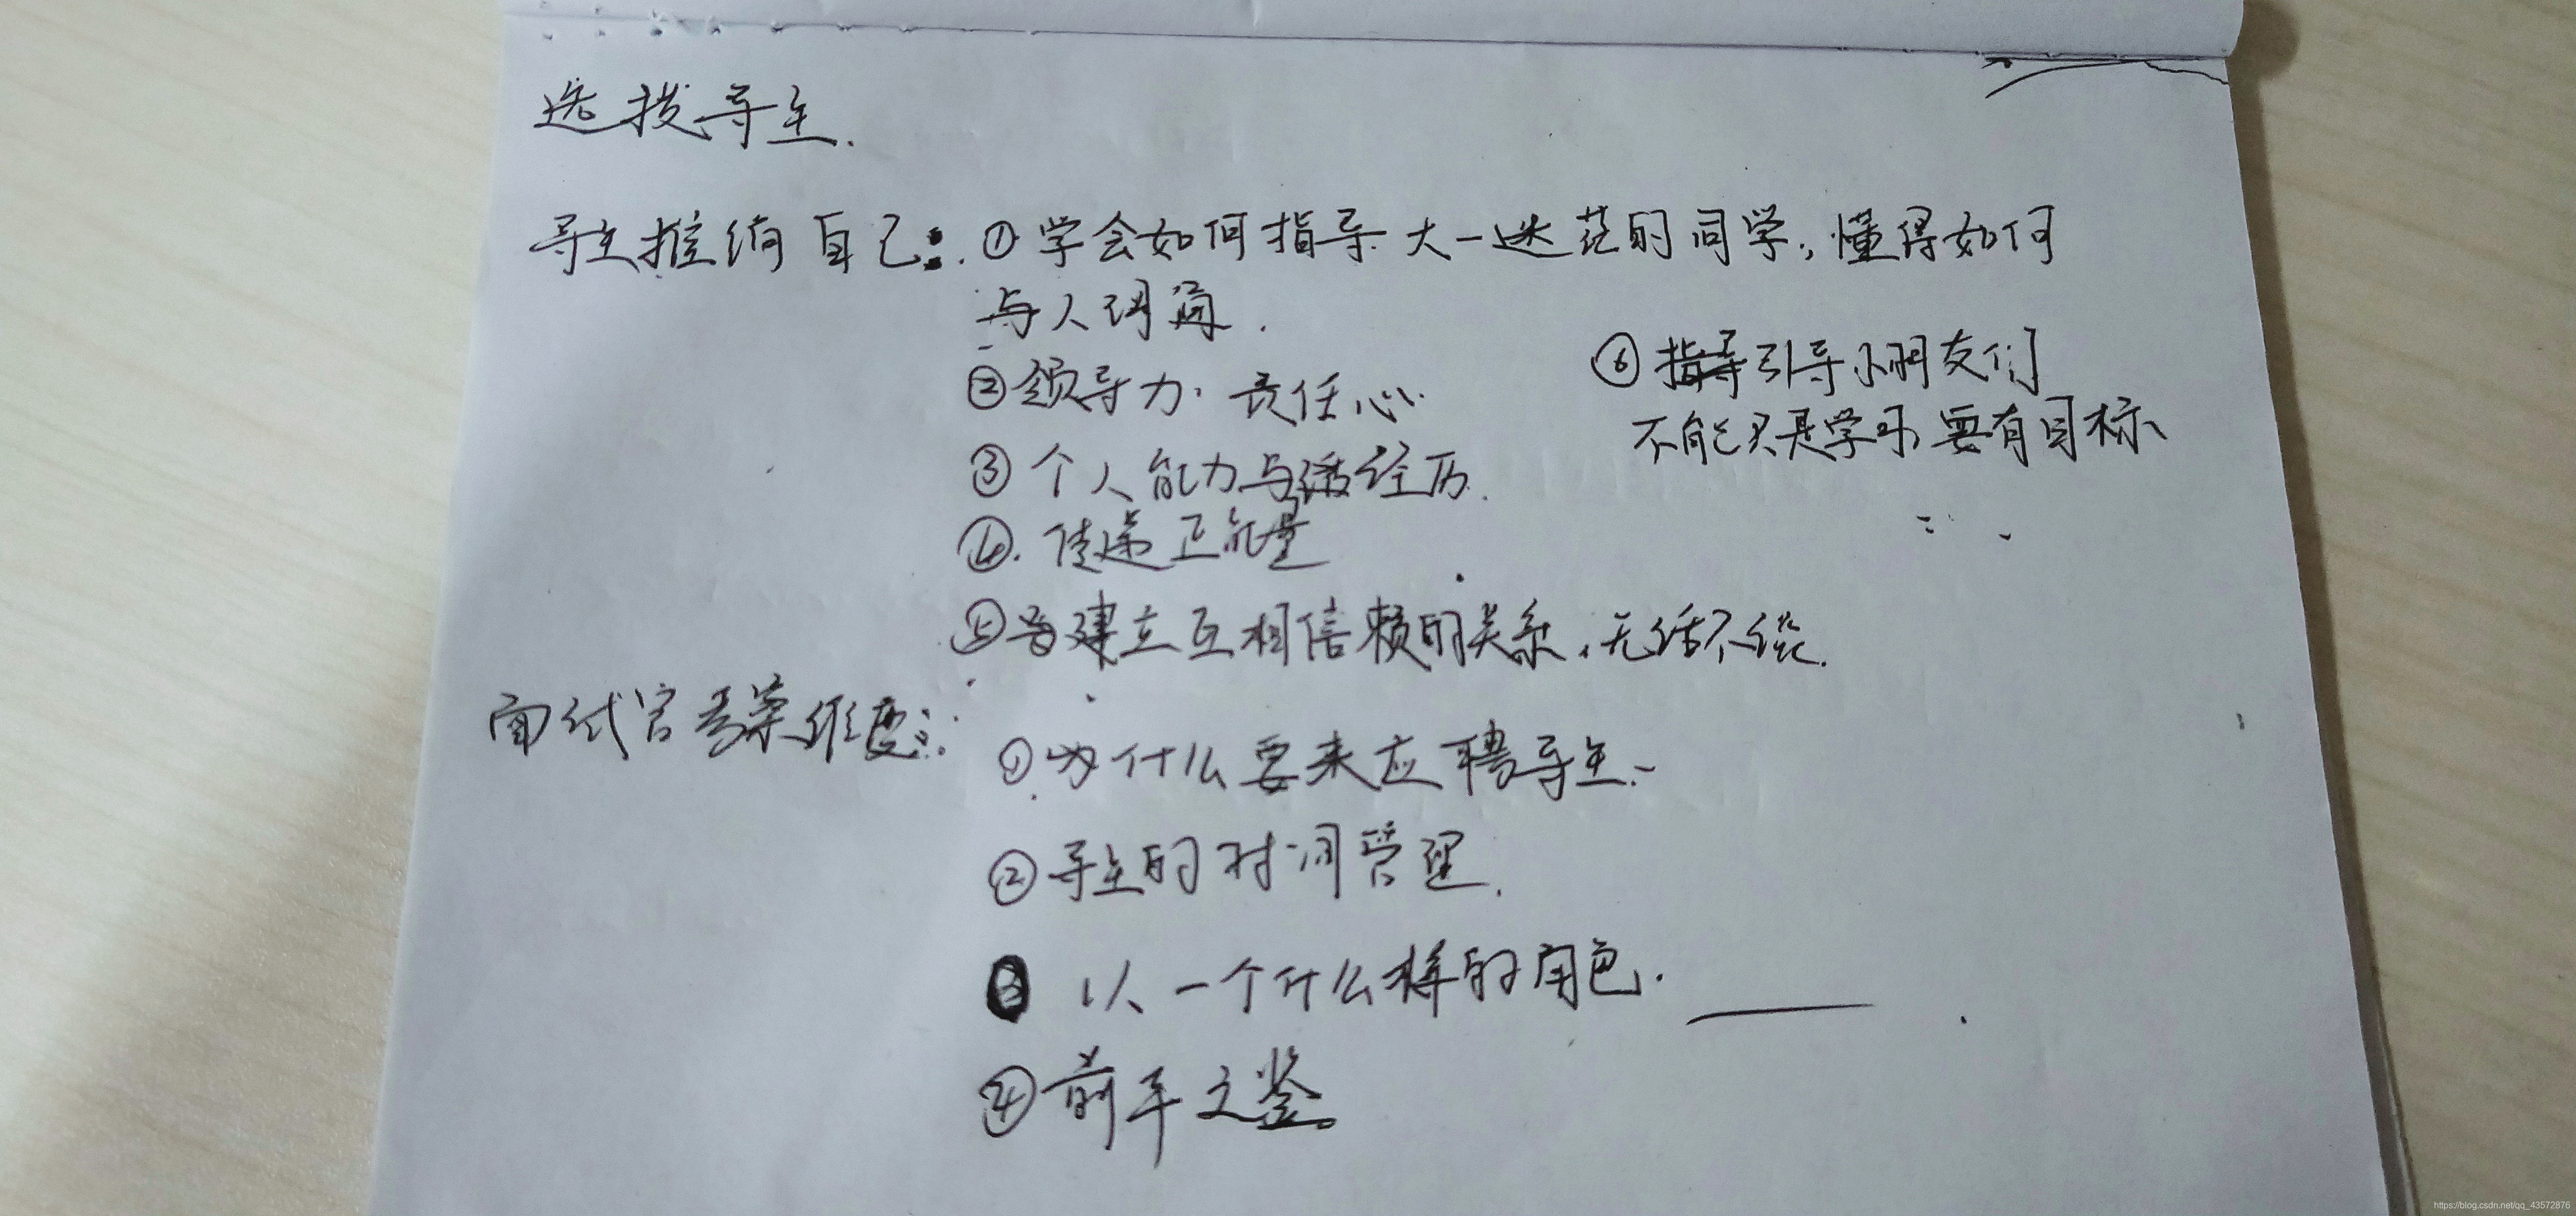 选拔导生.
导生推销自己: ①学会如何指导大一迷茫的同学,懂得如何
与人沟通.
②领导力、责任心.
③个人能力与经历.
④.传递正能量
⑤建立互相信赖的关系,无话不谈.
⑥引导小朋友们
不能只是学习,要有目标
面试官考察维度:
①为什么要来应聘导生.
②导生的时间管理.
③以一个什么样的角色.
④前车之鉴.
https://blog.csdn.net/qq_43572876